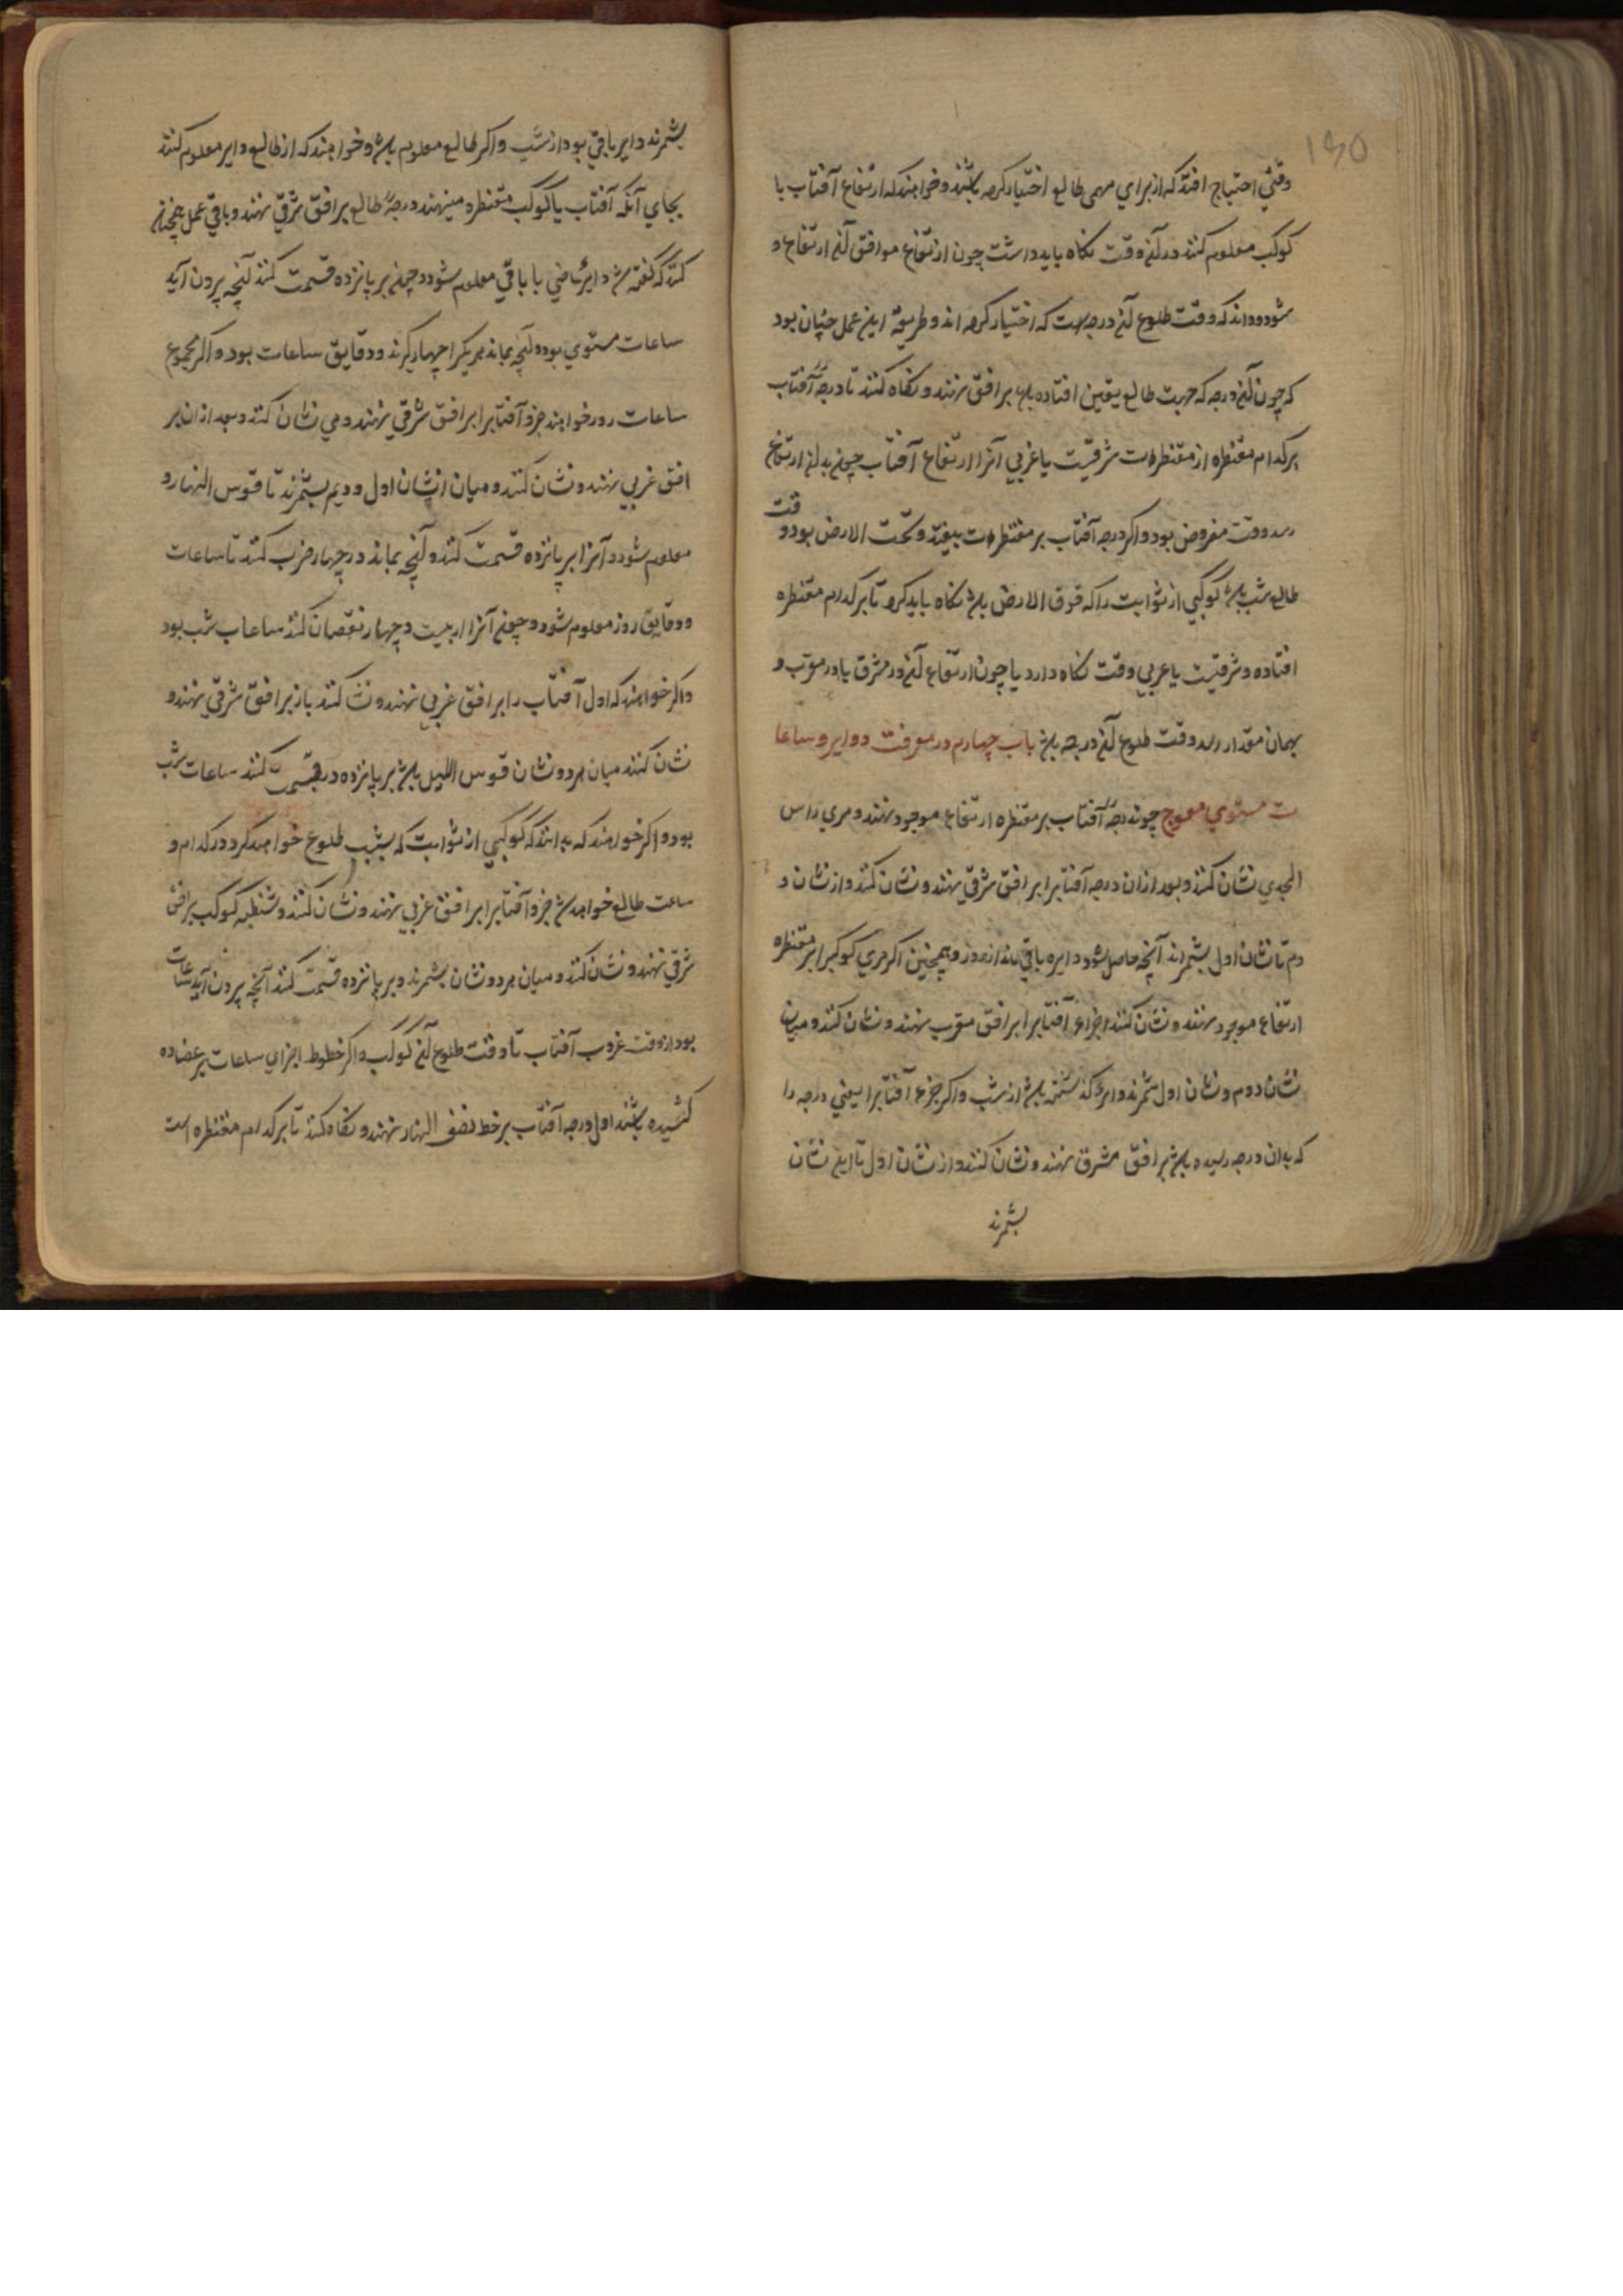 ۱۳۵
وقتی احتیاج افتد که از برای مهمی طالع اختیار کرده باشند و خواهند که ارتفاع آفتاب یا
کوکب معلوم کنند در آن وقت نگاه باید داشت چون ارتفاع موافق آن ارتفاع و
شود داند که وقت طلوع آن درجه است که اختیار کرده اند و طریقه این عمل چنان بود
که چون آن درجه که جهت طالع یقین افتاده باشد بر افق نهند و نگاه کنند تا درجه آفتاب
بر کدام مقنطره از مقنطرات شرقیست یا غربی آنرا ارتفاع آفتاب چون بدان ارتفاع
رسد وقت مفروض بود و اگر درجه آفتاب بر مقنطرات بیفتد و تحت الارض بود و قت
طالع شب باشد کوکبی از ثوابت را که فوق الارض باشد نگاه باید کرد تا بر کدام مقنطره
افتاده و شرقیست یا غربی وقت نگاه دارد یا چون ارتفاع آن در مشرق یا در مغرب و
بهمان مقدار رسد وقت طلوع آن درجه باشد باب چهارم در معرفت دوایر و ساعا
ت مستوی معوج چون درجه آفتاب بر مقنطره ارتفاع موجود نهند و مری راس
الجدی نشان کنند و بعد از ان درجه آفتابرا بر افق شرقی نهند و نشان کنند و از نشان د
دم تا نشان اول بشمراند آنچه حاصل شود دایره باقی ماند از روز و همچنین اگر مری کوکبرا بر مقنطره
ارتفاع موجود نهند و نشان کنند اجزاء آفتابرا بر افق مغرب نهند و نشان کنند و میان
نشان دوم و نشان اول شمرند دایره گذشته باشد از شب و اگر جزء آفتابرا یعنی درجه را
که به ان درجه رسیده باشد بر افق مشرق نهند و نشان کنند و از نشان اول تا این نشان
بشمرند
بشمرند دایر باقی بود از شب و اگر طالع معلوم باشد و خواهند که از طالع دایر معلوم کنند
بجای آنکه آفتاب یا کوکب مقنطره مینهند درجه طالع بر افق شرقی نهند و باقی عمل همچنان
کنند که گفته شد دایر ماضی یا باقی معلوم شود و چون بر پانزده قسمت کنند آنچه بیرون آید
ساعات مستوی بود و آنچه بماند هر یکرا چهار گیرند و دقایق ساعات بود و اگر مجموع
ساعات روز خواهند جزو آفتابرا بر افق شرقی نهند و می نشان کنند و بعد از ان بر
افق غربی نهند و نشان کنند و میان نشان اول و دیم بشمرند تا قوس النهار و
معلوم شود و آنرا بر پانزده قسمت کنند و آنچه بماند در چهار ضرب کنند تا ساعات
و دقایق روز معلوم شود و چون آنرا از بیست و چهار نقصان کنند ساعات شب بود
و اگر خواهند که اول آفتاب را بر افق غربی نهند و نشان کنند باز بر افق شرقی نهند و
نشان کنند میان هر دو نشان قوس اللیل باشد بر پانزده درقسمت کنند ساعات شب
بود و اگر خواهند که بدانند که کوکبی از ثوابت که بشب طلوع خواهد کرد در کدام و
ساعت طالع خواهد شد جزو آفتابرا بر افق غربی نهند و نشان کنند و شظیه کوکب بر افق
شرقی نهند و نشان کنند و میان هر دو نشان بشمرند و بر پانزده قسمت کنند آنچه بیرون آید ساعات
بود از وقت غروب آفتاب تا وقت طلوع آن کوکب و اگر خطوط اجزای ساعات بر عضاده
کشیده باشند اول درجه آفتاب بر خط نصف النهار نهند و نگاه کنند تا بر کدام مقنطره است